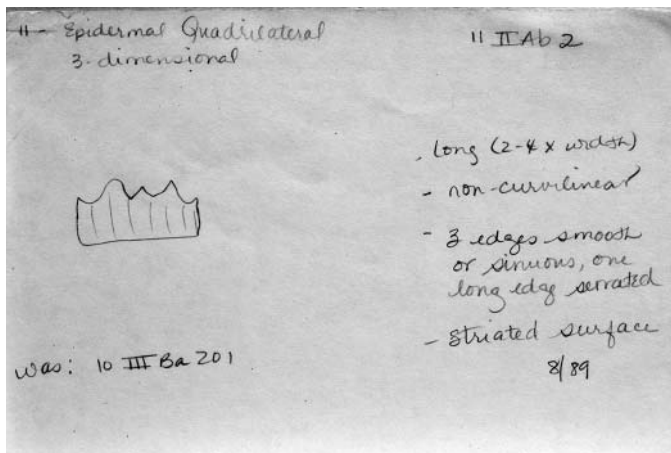 11 - Epidermal Quadrilateral
3-dimensional
11 II Ab 2
. long (2-4 x width)
- non-curvilinear
- 3 edges smooth
or sinuous, one
long edge serrated
- striated surface
8/89
was: 10 III Ba 201